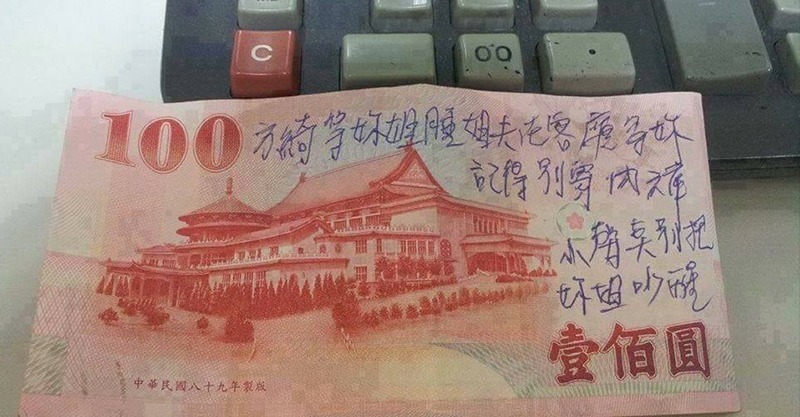 C
00
100
方綺等妳姐睡姐夫在客廳等妳
記得別穿內褲
小聲莫別把
妳姐吵醒
壹佰圓
中華民國八十九年製版